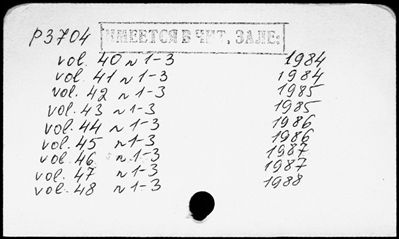 P3704 ИМЕЕТСЯ В ЧИТ. ЗАЛЕ:
vol. 40 n 1-3 1984
vol. 41 n 1-3 1984
vol. 42 n 1-3 1985
vol. 43 n 1-3 1985
vol. 44 n 1-3 1986
vol. 45 n 1-3 1986
vol. 46 n. 1-3 1987
vol. 47 n 1-3 1987
vol. 48 n 1-3 1988